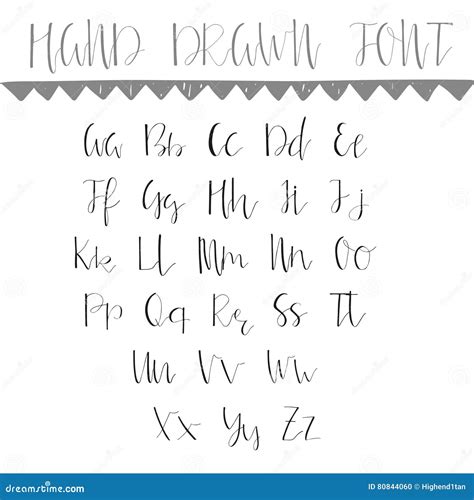 HAND DRAWN FONT
Aa Bb Cc Dd Ee
Ff Gg Hh Ii Jj
Kk Ll Mm Nn Oo
Pp Qq Rr Ss Tt
Uu Vv Ww
Xx Yy Zz
dreamstime.com
ID 80844060 © Highend1tan